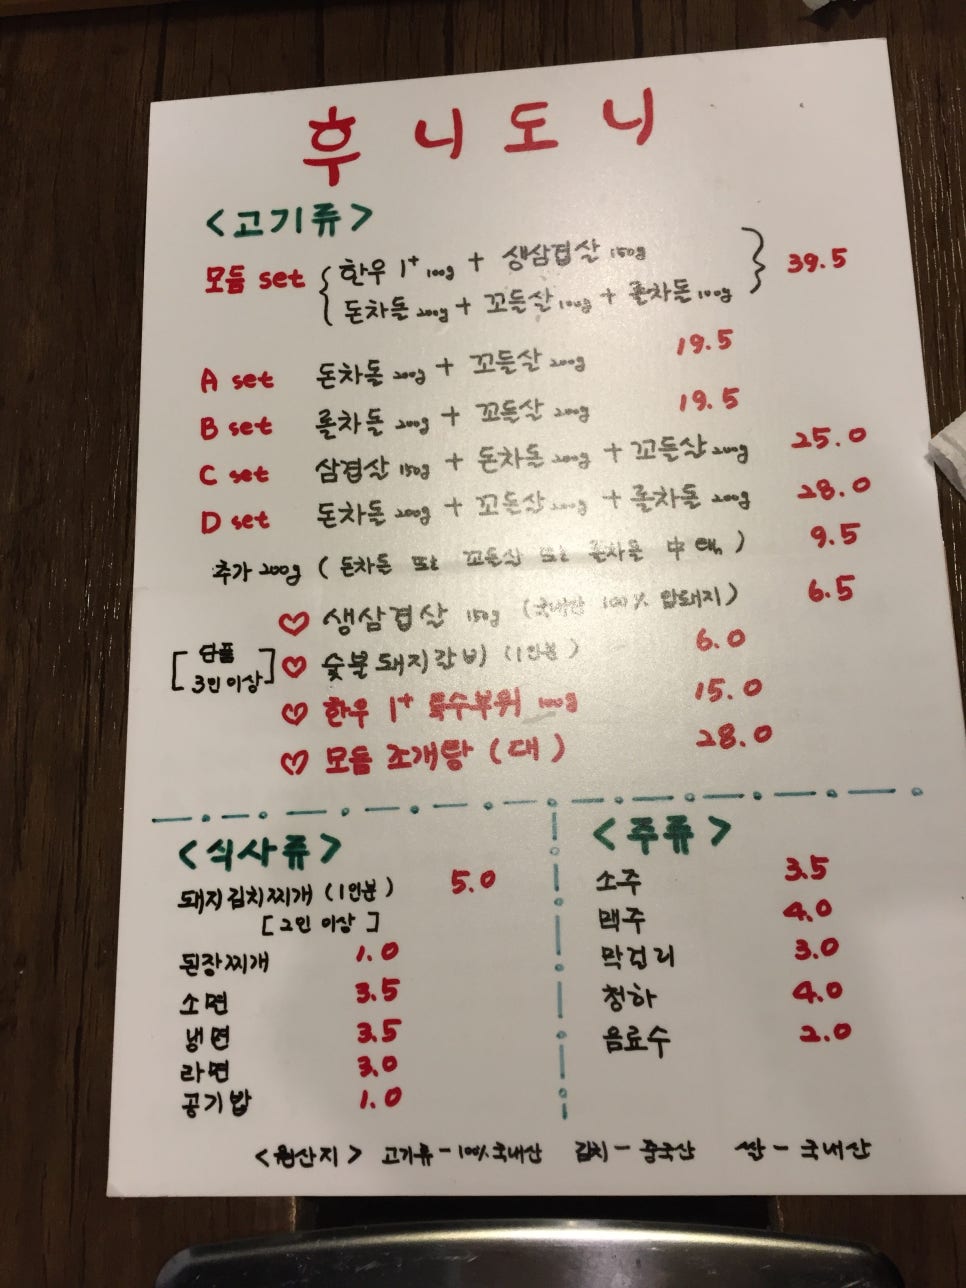 후니도니
<고기류>
모듬 set { 한우 1+ 100g + 생삼겹살 150g } 39.5
돈차돌 200g + 꼬들살 100g + 롤차돌 100g
A set 돈차돌 200g + 꼬들살 200g 19.5
B set 롤차돌 200g + 꼬들살 200g 19.5
C set 삼겹살 150g + 돈차돌 200g + 꼬들살 200g 25.0
D set 돈차돌 200g + 꼬들살 200g + 롤차돌 200g 28.0
추가 200g (돈차돌 또는 꼬들살 또는 롤차돌 中 택1) 9.5
♡ 생삼겹살 150g (국내산 100% 암돼지) 6.5
[단품 3인 이상] ♡ 숯불돼지갈비 (1인분) 6.0
♡ 한우 1+ 특수부위 100g 15.0
♡ 모듬 조개탕 (대) 28.0
<식사류>
돼지김치찌개 (1인분) 5.0
[2인 이상]
된장찌개 1.0
소면 3.5
냉면 3.5
라면 3.0
공기밥 1.0
<주류>
소주 3.5
맥주 4.0
막걸리 3.0
청하 4.0
음료수 2.0
<원산지> 고기류 - 100% 국내산 김치 - 중국산 쌀 - 국내산